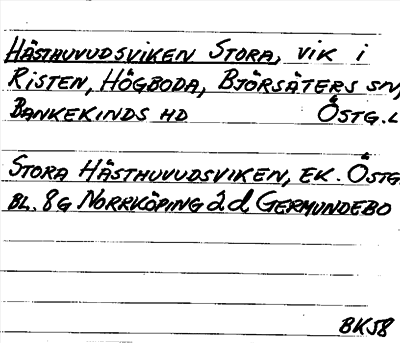 HÄSTHUVUDSVIKEN STORA, VIK i
RISTEN, HÖGBODA, BJÖRSÄTERS SN,
BANKEKINDS HD ÖSTG.L
STORA HÄSTHUVUDSVIKEN, EK. ÖSTG.
BL. 8G NORRKÖPING 2 d GERMUNDEBO
BK58